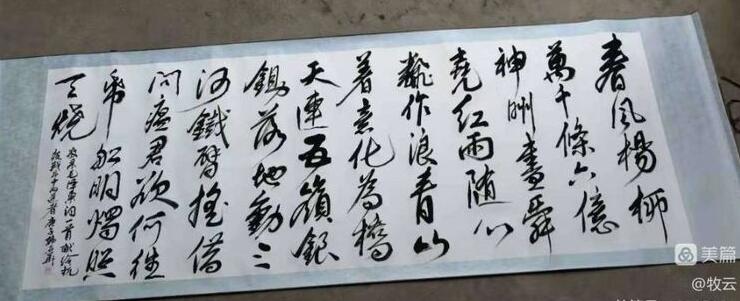 春風楊柳
萬千條六億
神州盡舜
堯紅雨隨心
飜作浪青山
着意化為橋
天連五嶺銀
鋤落地動三
河鐵臂搖借
問瘟君欲何往
帋船明燭照
天燒
毛澤東 一首 给抗
美篇
@牧云